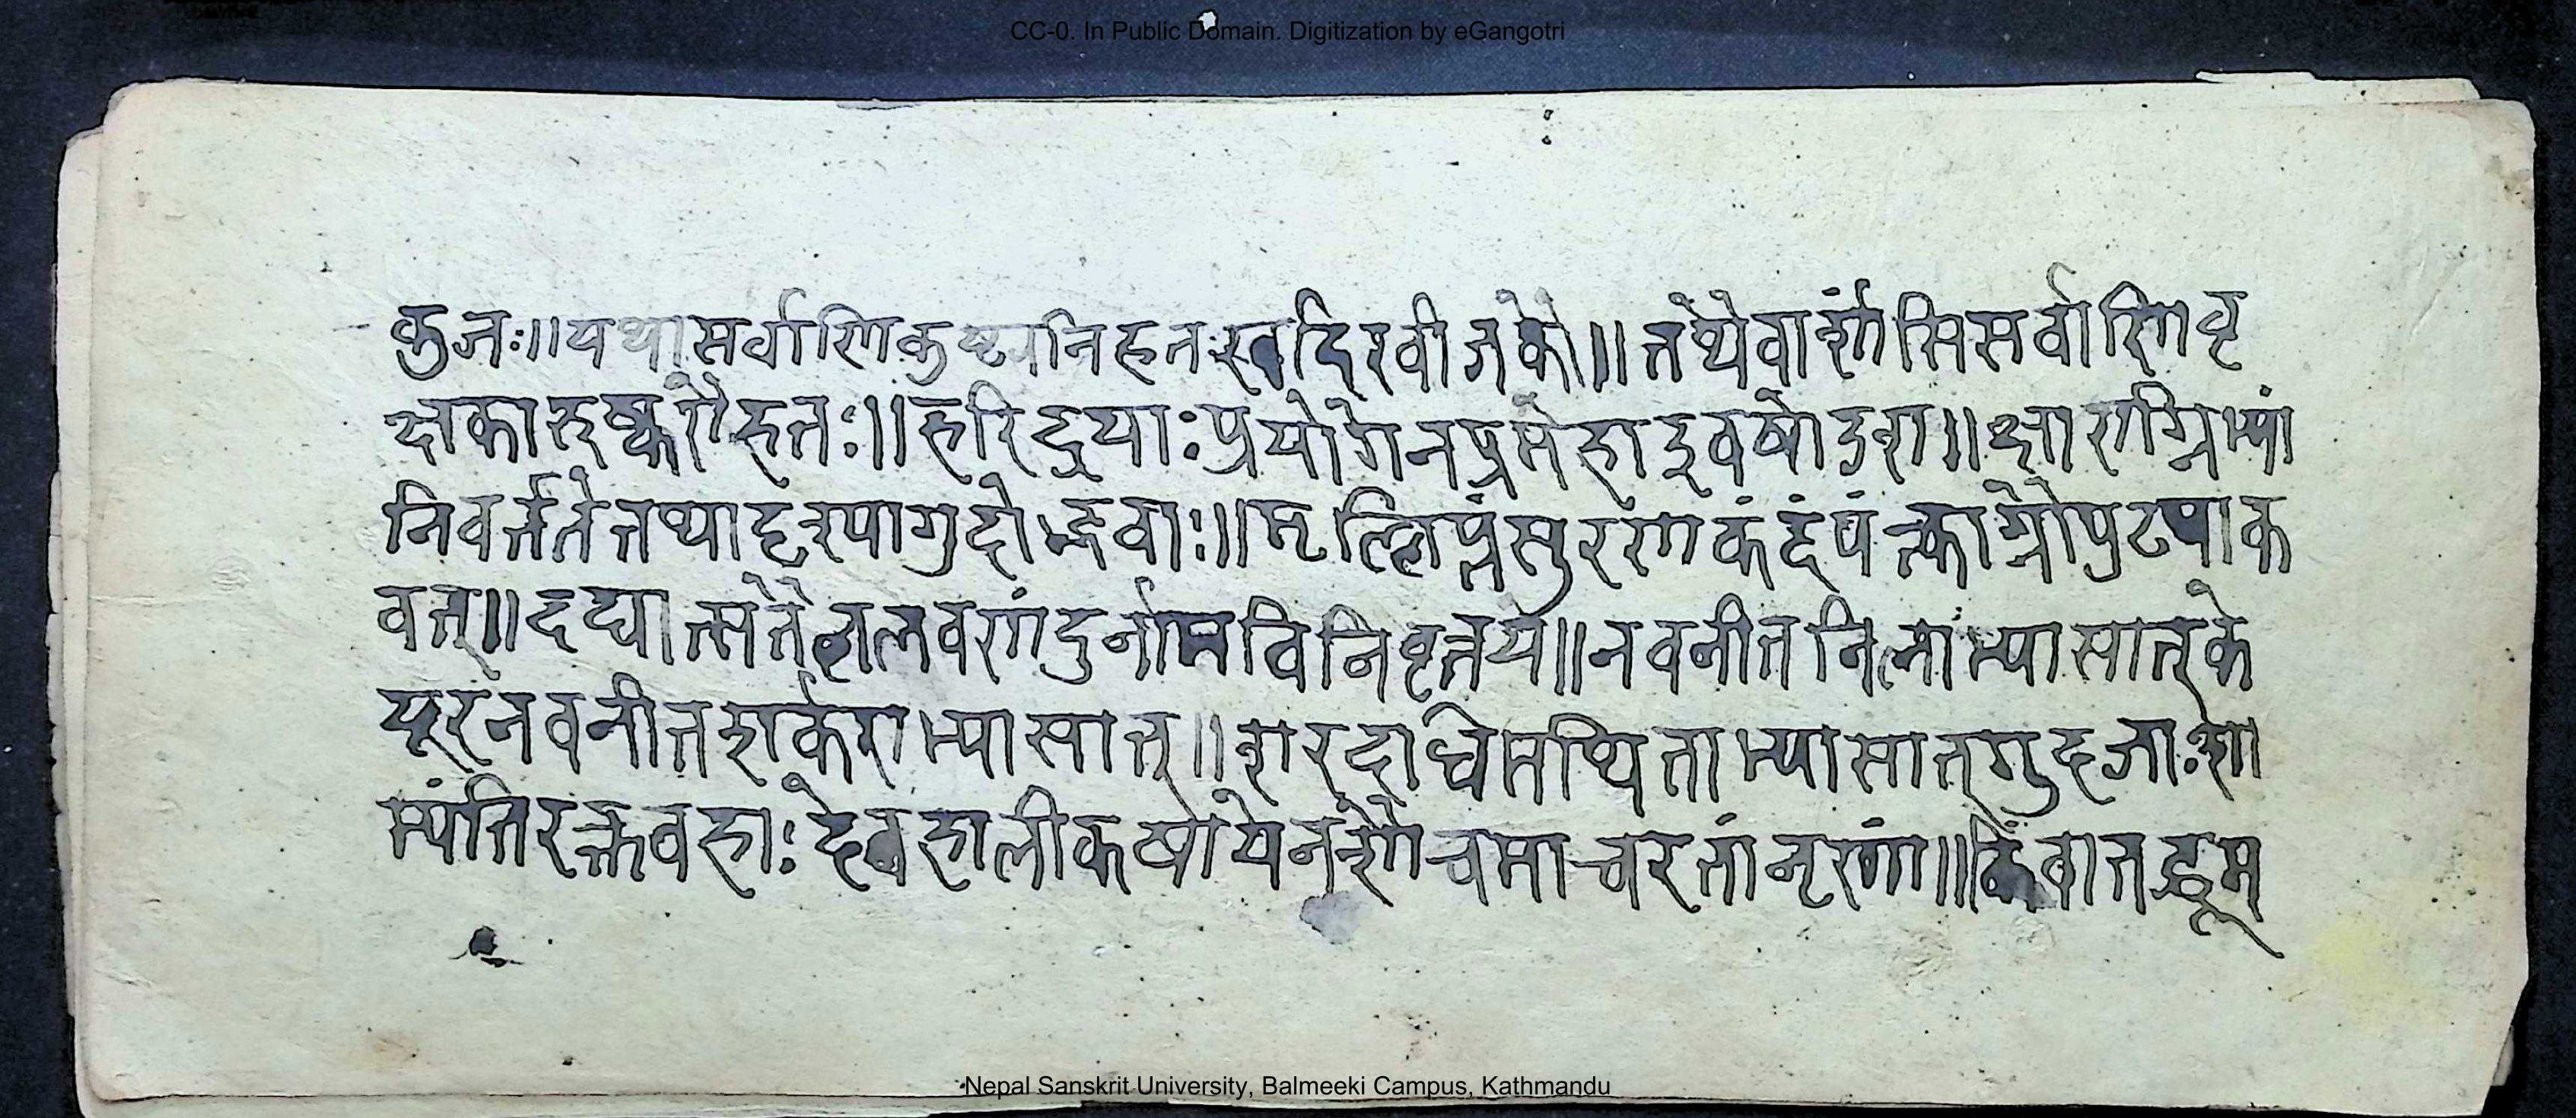 CC-0. In Public Domain. Digitization by eGangotri
कुजः॥यथासर्वाणिकुष्टानिहतःखदिरवीजकौ॥तथैवार्शांसिसर्वाणिवृ
क्षकारुष्करौहतः॥हरिद्रयाःप्रयोगेनप्रमेहाइवषोडश॥क्षाराग्निभ्यां
निवर्त्तंतेतथादृश्यागुदोद्भवाः॥मृल्लिप्तंसुरणंकंदंपंत्काग्नौपुटपाक
वत्॥दद्यात्सतैललवणंदुर्नामविनिवृत्तये॥नवनीततिलाभ्यासात्के
यूरनवनीतशर्कराभ्यासात्॥शरदधिमथिताभ्यासात्गुदजाःशा
म्यंतिरक्तवहाः देवदालीकषायेनशौचमाचरतांनृणां॥किंवातद्धूम
Nepal Sanskrit University, Balmeeki Campus, Kathmandu